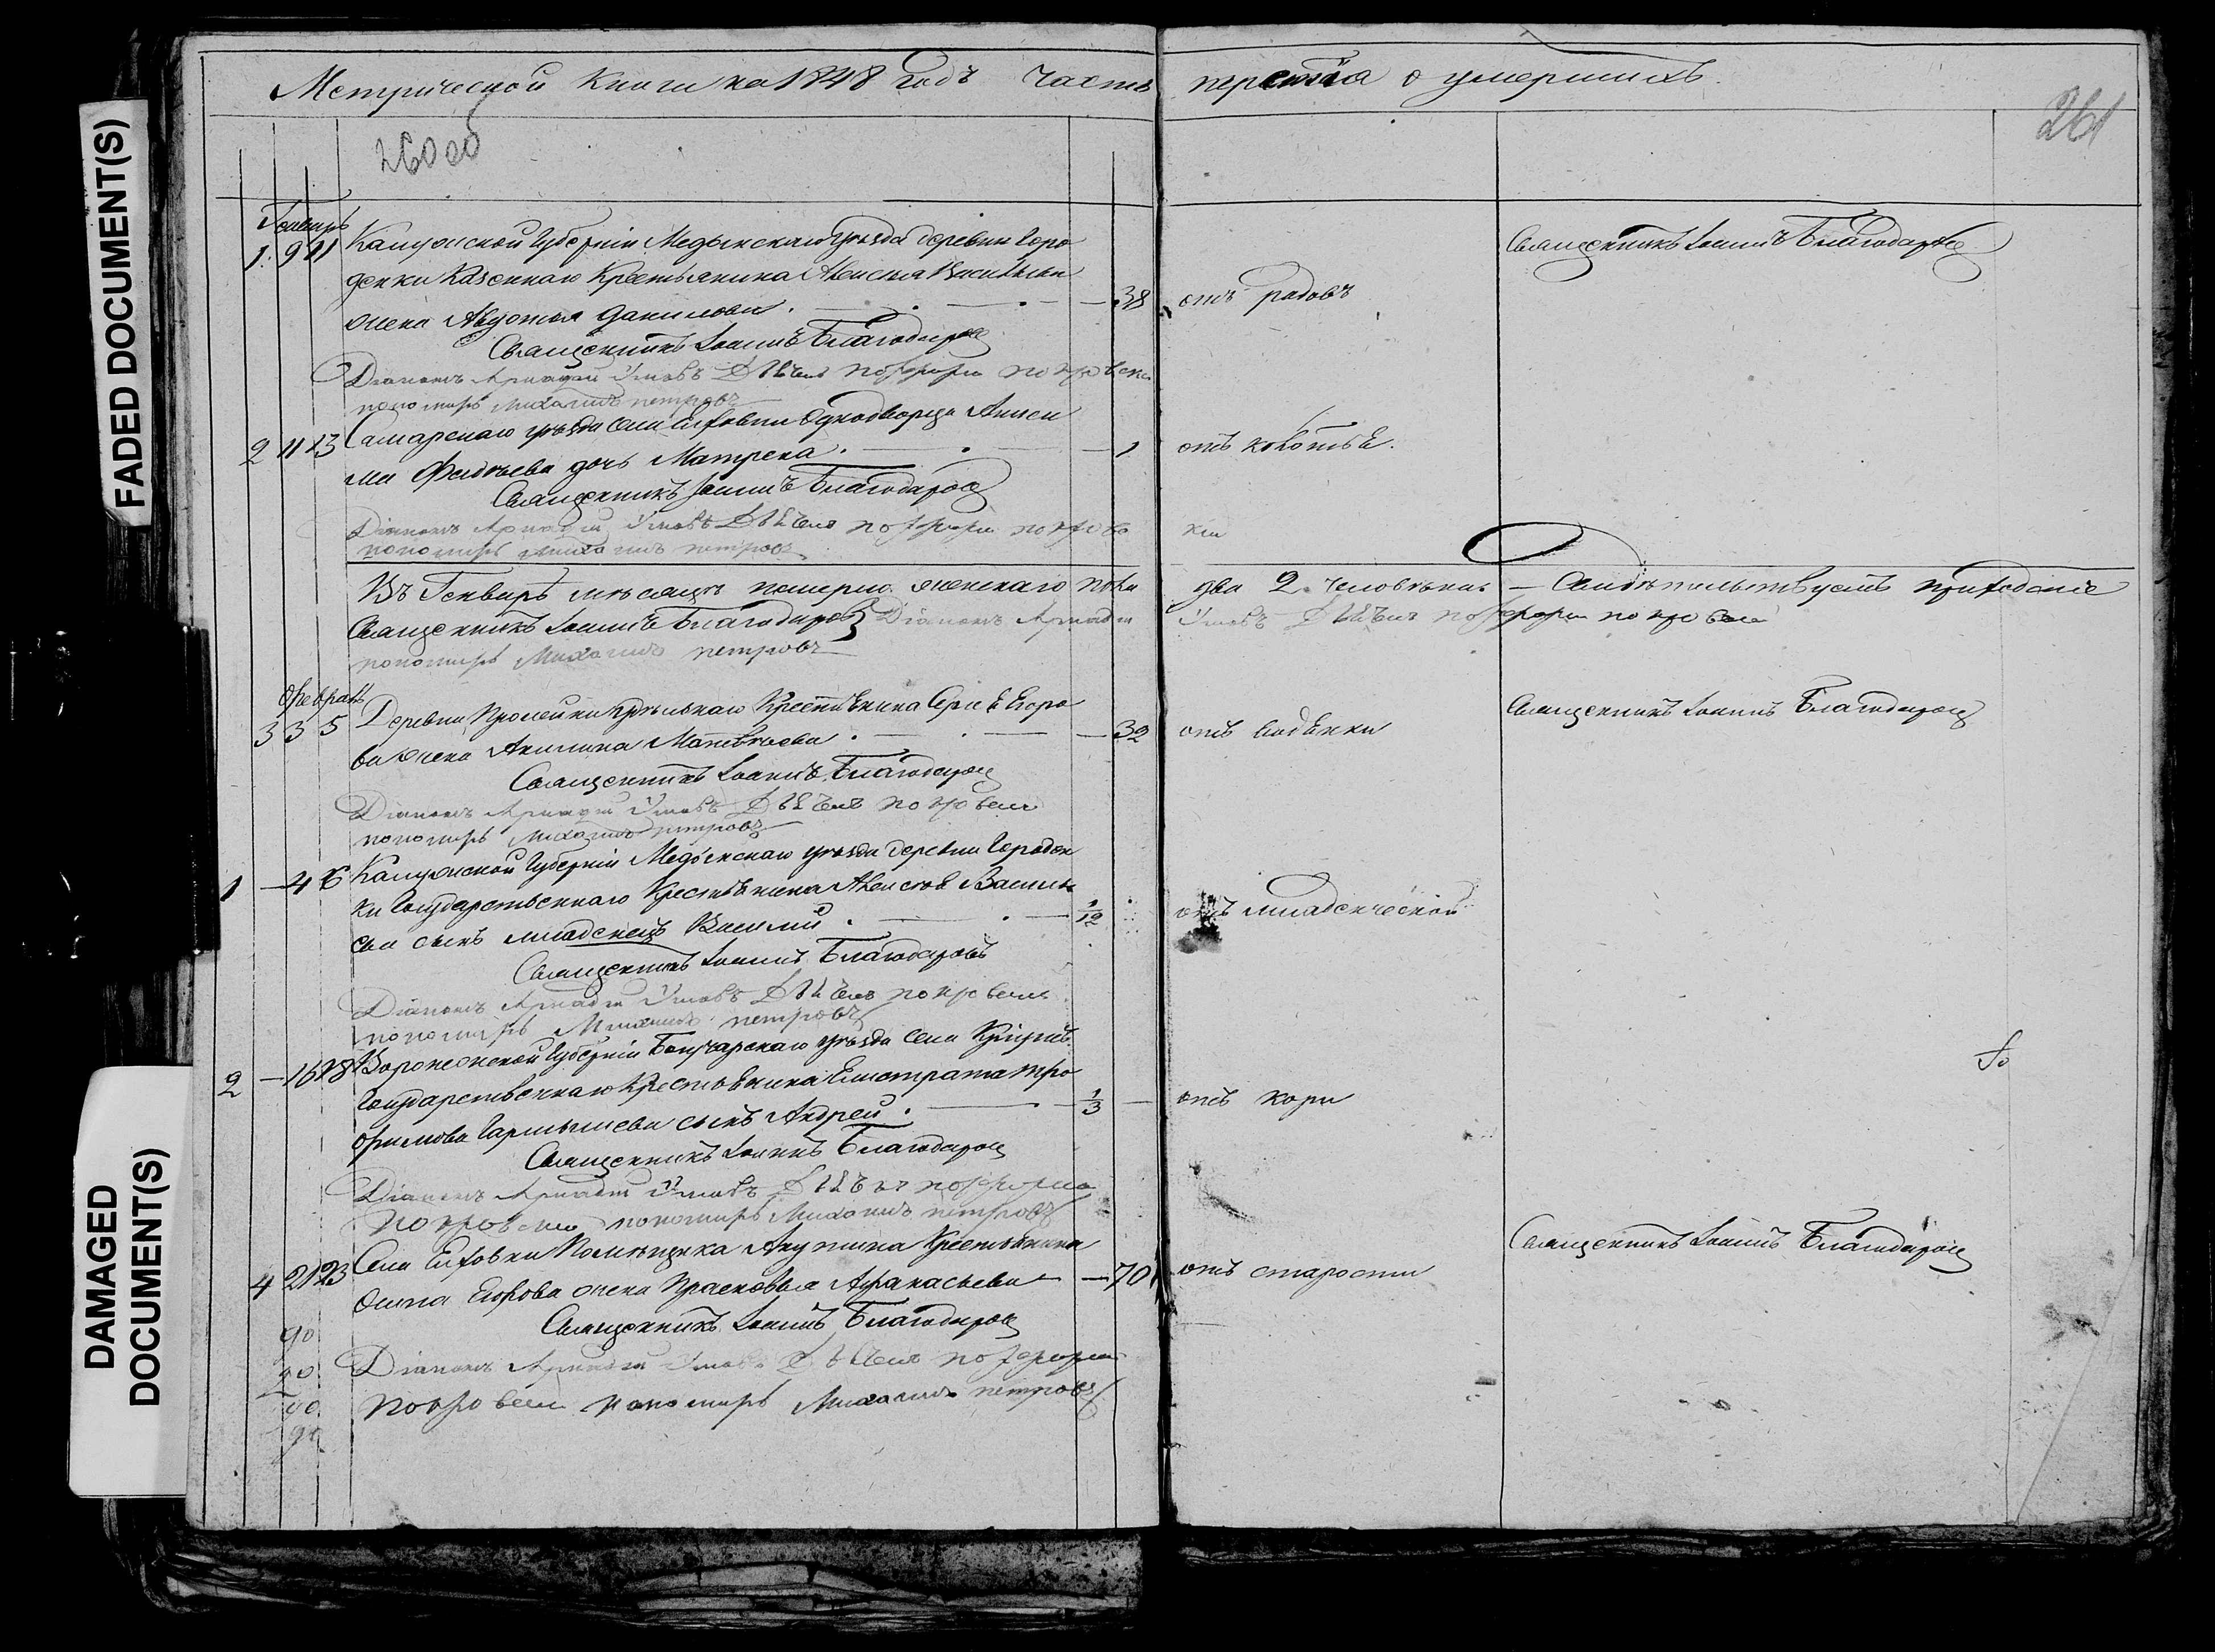 FADED DOCUMENT(S)
DAMAGED DOCUMENT(S)
Метрической книги на 1848 годъ часть третiя о умершихъ.
260 об
261
Генварь
1. 9 11 Калужской Губернiи Медынскаго уѣзда деревни Горо
денки Казеннаго Крестьянина Алексѣя Васильева
жена Авдотья Данилова. — 38 отъ родовъ
Священникъ Iоаннъ Благодаровъ
Священникъ Iоаннъ Благодаровъ
Дiаконъ Аркадiй Умовъ Дьячекъ Порфирiй Покровскiй
пономарь Михаилъ Петровъ
2 11 13 Самарскаго уѣзда села Елховки Однодворца
дочь Матрена. — 1 отъ колотья.
Священникъ Iоаннъ Благодаровъ
Дiаконъ Аркадiй Умовъ Дьячекъ Порфирiй Покровскiй
пономарь Михаилъ Петровъ
Въ Генварѣ мѣсяцѣ померло женскаго пола два 2. человѣка — Свидѣтельствуемъ
Священникъ Iоаннъ Благодаровъ Дiаконъ Аркадiй Умовъ Дьячекъ Порфирiй Покровскiй
пономарь Михаилъ Петровъ
Февраль
3 3 5 Деревни Удѣльнаго Крестьянина Сергѣя Егоро
ва жена Акилина Матвѣева. — 32 отъ водянки
Священникъ Iоаннъ Благодаровъ
Священникъ Iоаннъ Благодаровъ
Дiаконъ Аркадiй Умовъ Дьячекъ Покровскiй
пономарь Михаилъ Петровъ
1 — 4 6 Калужской Губернiи Медынскаго уѣзда деревни Городен
ки Государственнаго Крестьянина Алексѣя Василь
ева сынъ младенецъ Василiй. — 1/12 отъ младенческой
Священникъ Iоаннъ Благодаровъ
Дiаконъ Аркадiй Умовъ Дьячекъ Покровскiй
пономарь Михаилъ Петровъ
2 — 16 18 Воронежской Губернiи Богучарскаго уѣзда села
Государственнаго Крестьянина Елистрата Тро
фимова сынъ Андрей. — 1/3 — отъ кори
Священникъ Iоаннъ Благодаровъ
Дiаконъ Аркадiй Умовъ Дьячекъ Порфирiй
Покровскiй пономарь Михаилъ Петровъ
4 21 23 Села Елховки Помѣщика Акутина Крестьянина
Осипа Егорова жена Прасковья Афанасьева — 70 отъ старости
Священникъ Iоаннъ Благодаровъ
Священникъ Iоаннъ Благодаровъ
Дiаконъ Аркадiй Умовъ Дьячекъ Порфирiй
Покровскiй пономарь Михаилъ Петровъ